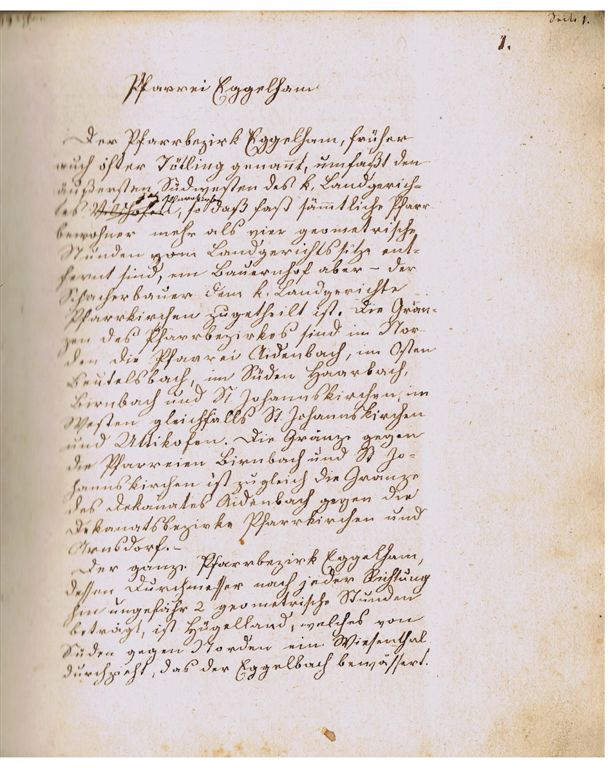 Seite 1.
1.
Pfarrei Eggelham
Der Pfarrbezirk Eggelham, früher
auch öfter Tötling genannt, umfaßt den
äußersten Südwesten des k. Landgerich-
tes Vilshofen, so daß fast sämmtliche Pfarr
bewohner mehr als vier geometrische
Stunden vom Landgerichtssitze ent-
fernt sind, ein Bauernhof aber – der
Schacherbauer dem k. Landgerichte
Pfarrkirchen zugetheilt ist. Die Grän-
zen des Pfarrbezirkes sind im Nor-
den die Pfarrei Aidenbach, im Osten
Beutelsbach, im Süden Haarbach,
Birnbach und St Johannskirchen, im
Westen gleichfalls St Johannskirchen
und Uttikofen. Die Gränze gegen
die Pfarreien Birnbach und St Jo-
hannskirchen ist zugleich die Gränze
des Dekanates Aidenbach gegen die
Dekanatsbezirke Pfarrkirchen und
Arnsdorf. –
Der ganze Pfarrbezirk Eggelham,
dessen Durchmesser nach jeder Richtung
hin ungefähr 2 geometrische Stunden
beträgt, ist Hügelland, welches von
Süden gegen Norden ein Wiesenthal
durchzieht, das der Eggelbach bewässert.